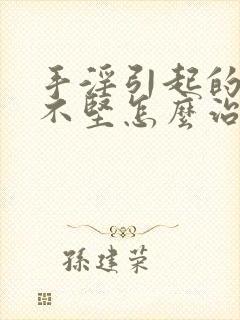 手淫引起的
不堅怎麼治
孫建荣